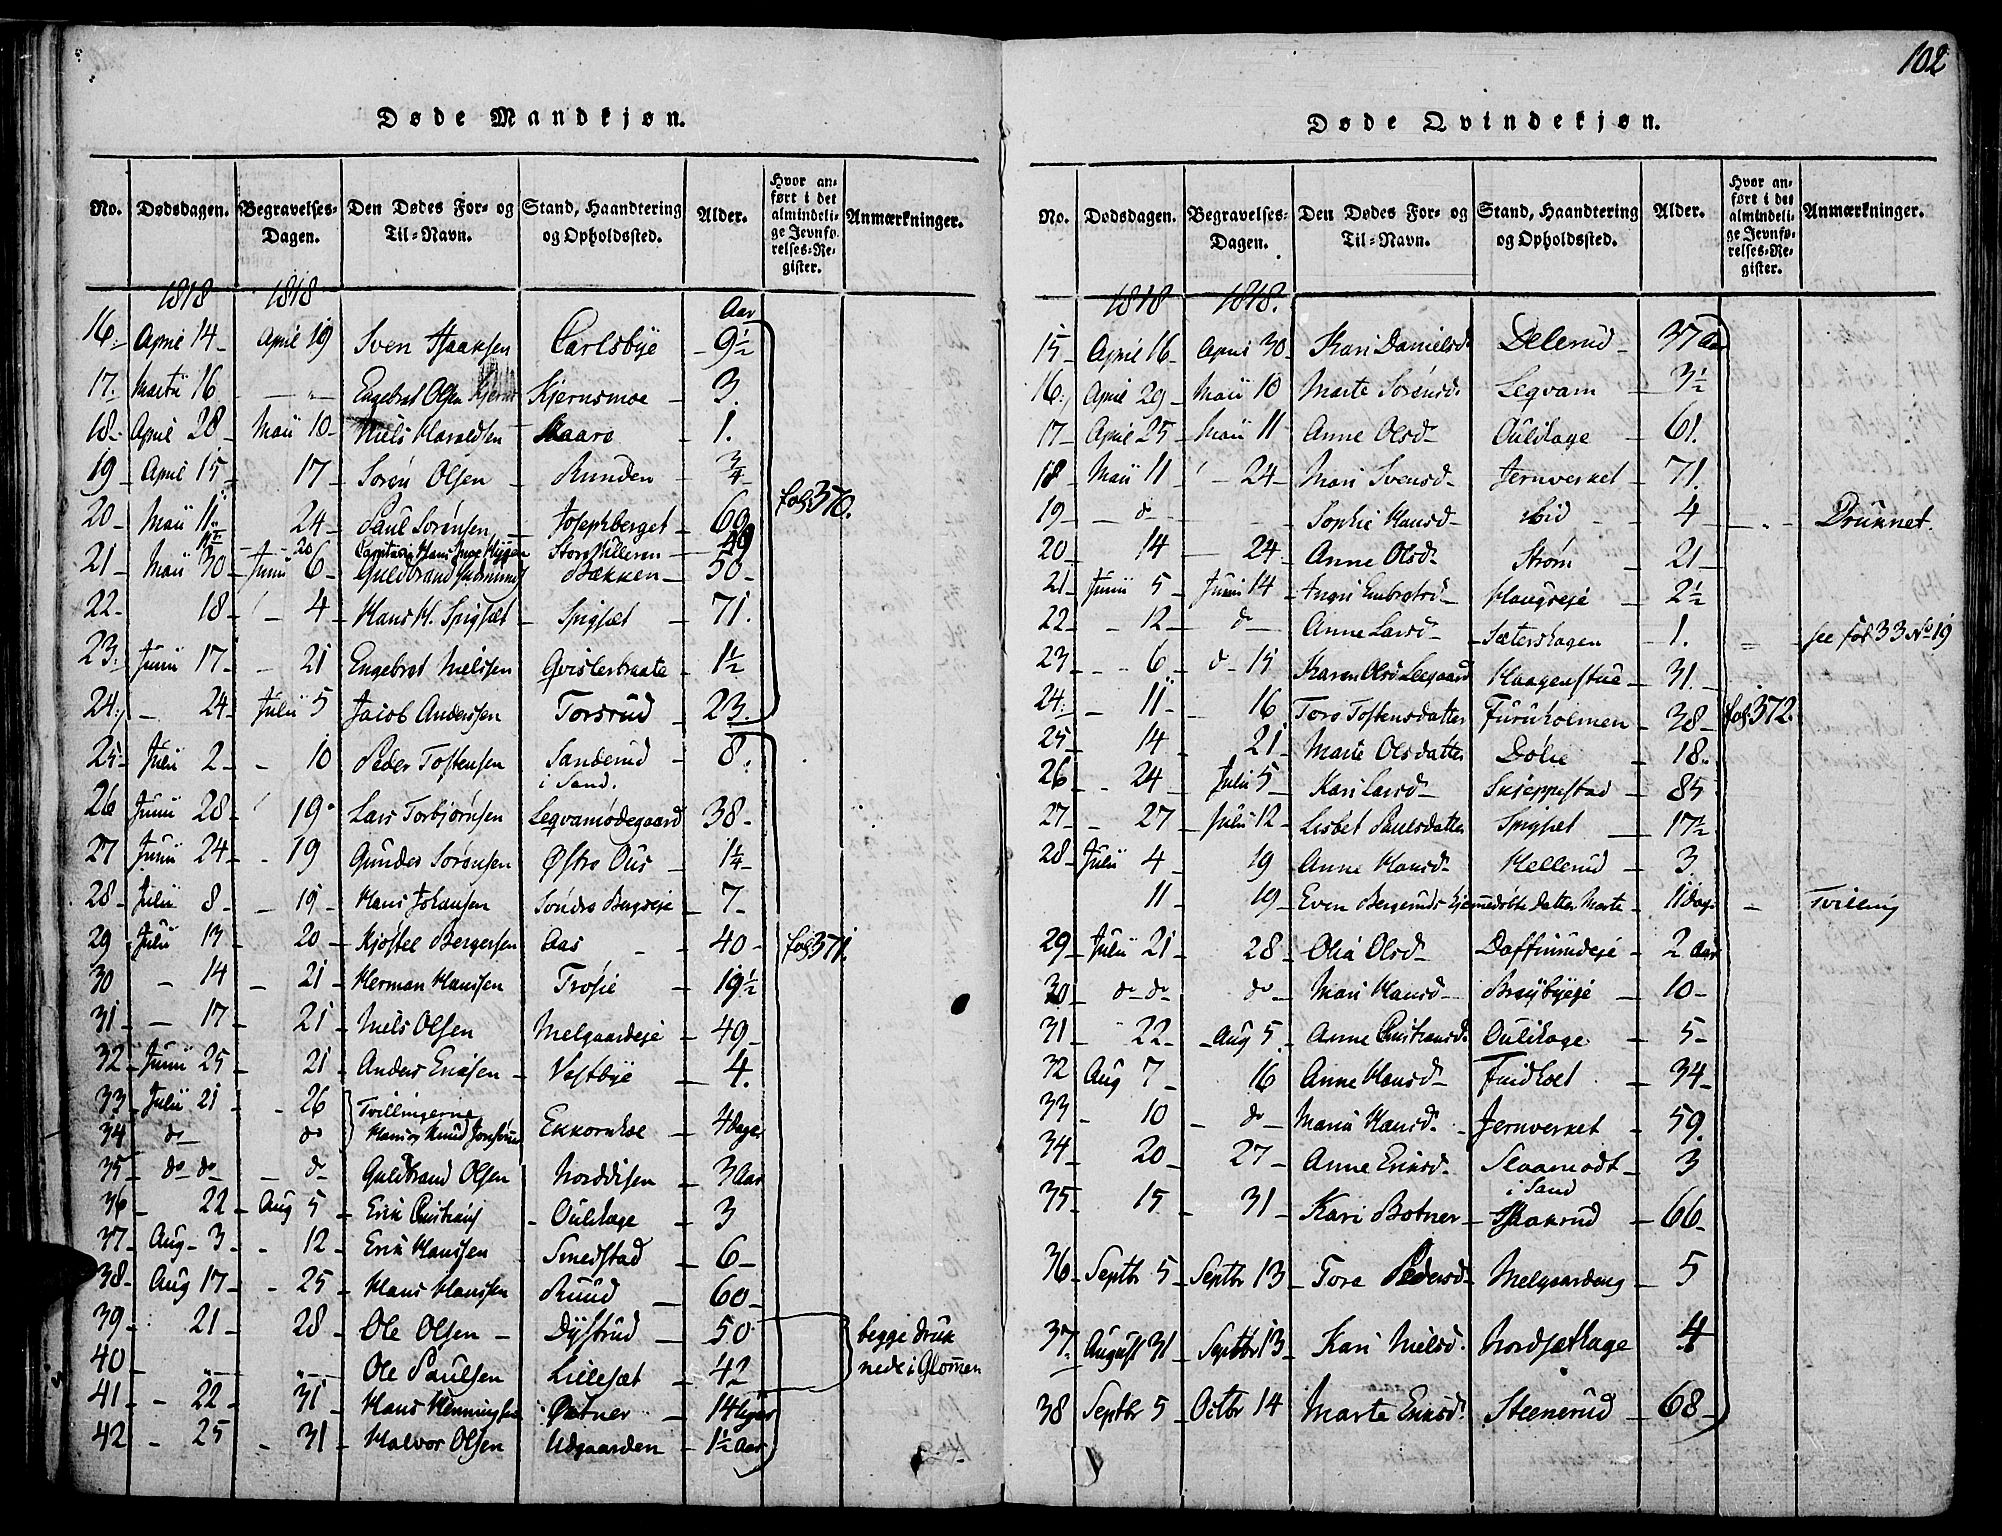 102
Døde Mandkjøn.
No. Dødsdagen. Begravelses-Dagen. Den Dødes For- og Til-Navn. Stand, Haandtering og Opholdssted. Alder. Hvor anført i det almindelige Jevnførelses-Register. Anmærkninger.
1818 1818 Aar
16. April 14 April 19 Sven Isaaksen Carlsbye 9½
17. Martii 16 — " — Engebret Olsen Kjernsmoe 3.
18. April 28 Maii 10 Niels Haraldsen Skaare 1.
19 April 15 17 Sørén Olsen Runden ¾
20 Maii 11 24 Paul Sørensen Josephberget 60 fol. 370.
20 Capitain Hans Hygen Storehilleren
21 Maii 30 Junii 6 Guldbrand Bækken 50
22 18 4 Hans H. Spigset Spigset 71.
23. Junii 17 21 Engebret Nielsen Qvistertraate 1½
24. 24 Julii 5 Jacob Andersen Torsrud 23.
25 Julii 2 10 Peder Tostensen Sanderud i Sand. 8.
26 Junii 28 19 Lars Torbjørnsen Leqvamødegaard 38
27 Junii 24 19 Gunder Sørensen Østre Ous 1¼
28 Julii 8 19 Hans Johansen Søndre Bergseje 7
29 Julii 13 20 Kjøstel Bergersen Aas 40 fol. 371.
30 14 21 Herman Hansen Troseie 19½
31 17 21 Niels Olsen Melgaardseje 49
32 Junii 25 21 Anders Ericsen Vestbye 4.
33 Julii 21 26 Tvillingerne
34 do do Hans og Knud Ekkornhoe 4 dage
35 do do do Guldbrand Olsen Norddisen 3 Aar
36 22 Aug 5 Erik Christians Oulihage 3
37 Aug 3 12 Erik Hansen Smedstad 6
38 Aug 17 25 Hans Hansen Ruud 60
39 21 28 Ole Olsen Dystrud 50 begge druk
40 Ole Paulsen Lillesæt 42 nede i Glommen
41 22 31 Hans Henningsen 14
42 25 31 Halvor Olsen Udgaarden 1½ Aar
Døde Qvindekjøn.
No. Dødsdagen. Begravelses-Dagen. Den Dødes For- og Til-Navn. Stand, Haandtering og Opholdssted. Alder. Hvor anført i det almindelige Jevnførelses-Register. Anmærkninger.
1818 1818.
15 April 16 April 30 Kari Danielsd. Delerud 37 Aar
16. April 29 Maii 10 Marte Sørensd. Leqvam 3½
17 April 25 Maii 11 Anne Olsd. Oulihage 61.
18 Maii 11 24 Mari Svensd. Jernverket 71.
19 do Sophie Hansd. ibid 4 Druknet.
20 14 24 Anne Olsd. Strøm 21
21 Junii 5 Junii 14 Ingri Embretsd. Haugseje 2½
22 12 do Anne Larsd. Sæterskagen 1. see fol. 33 No 19
23 6 do 15 Karen Olsd Leegaard Haagenstue 31.
24. 11 16 Tore Tostensdatter Furuholmen 38 fol. 372.
25 14 21 Marte Olsdatter Dølie 18.
26 24 Julii 5 Kari Larsd. Skjeppestad 85
27 27 Julii 12 Lisbet Paulsdatter Spigset 17½
28 Julii 4 19 Anne Hansd. Hellerud 3.
11 19 Even Bergeruds hjemmedøbte datter Marte 11 dage Tvilling
29 Julii 21 28 Olia Olsd. Daffinrudeje 2 Aar
30 do do do Mari Hansd. Braybyeje 10
31 22 Aug 5 Anne Christiansd. Oulihage 5
32 Aug 7 16 Anne Hansd. Findhoel 34
33 10 do Maria Hansd. Jernverket 59.
34 20 27 Anne Ericsd. Slaamodt i Sand 3
35 15 31 Kari Botner Haakrud 66
36 Septbr 5 Septbr 13 Tore Pedersd. Melgaardeng 5
37. August 31 Septbr 13 Kari Nielsd. Nordsethage 4
38 Septbr 5 Octbr 14 Marte Ericsd. Steenerud 68